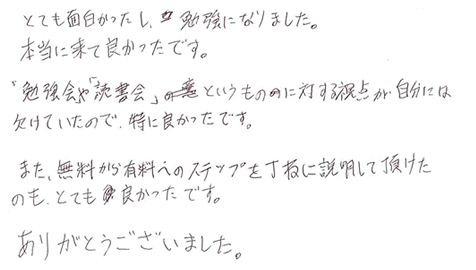 とても面白かったし、勉強になりました。
本当に来て良かったです。
"勉強会や「読書会」というものに対する視点が自分には
欠けていたので、特に良かったです。
また、無料から有料へのステップを丁寧に説明して頂けた
のも、とても良かったです。
ありがとうございました。